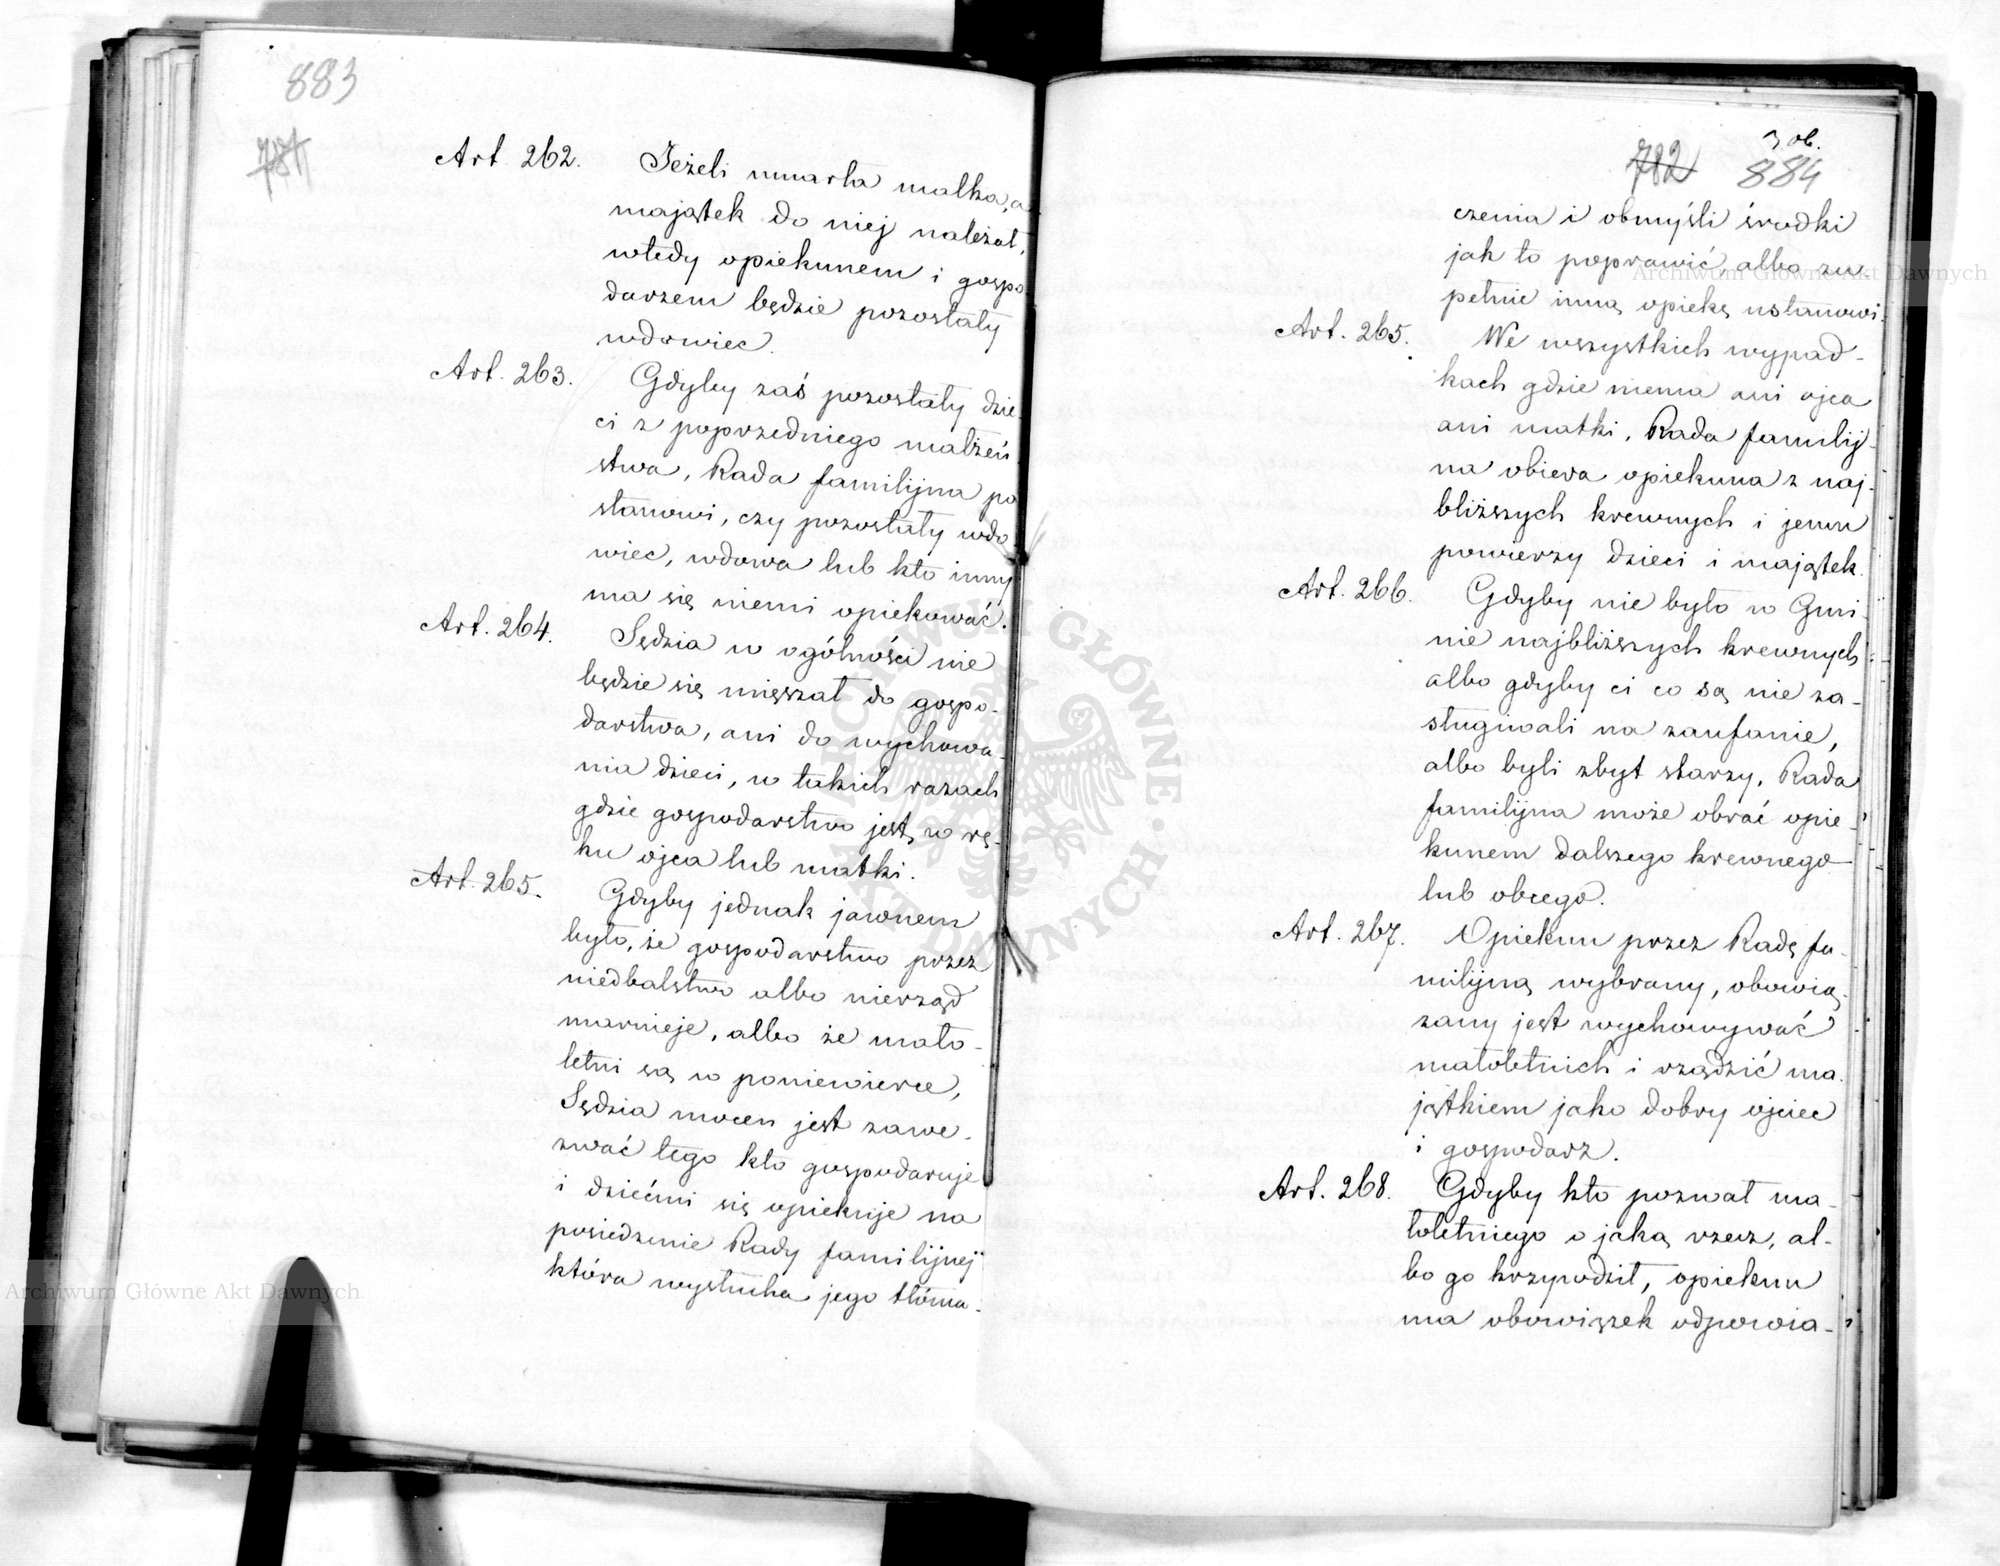 883
781
Art. 262. Jeżeli umarła matka, a
majątek do niej należał,
wtedy opiekunem i gospo
darzem będzie pozostały
wdowiec.
Art. 263. Gdyby zaś pozostały dzie
ci z poprzedniego małżeń
stwa, Rada familijna po
stanowi, czy pozostały wdo
wiec, wdowa lub kto inny
ma się niemi opiekować.
Art. 264. Sędzia w ogólności nie
będzie się mięszał do gospo-
darstwa, ani do wychowa
nia dzieci, w takich razach
gdzie gospodarstwo jest w rę-
ku ojca lub matki.
Art. 265. Gdyby jednak jawnem
było, że gospodarstwo przez
niedbalstwo albo nierząd
marnieje, albo że mało-
letni są w poniewierce,
Sędzia mocen jest zawe-
zwać tego kto gospodaruje
i dziećmi się opiekuje na
posiedzenie Rady familijnej
która wysłucha jego tłóma-
3 ob.
782 884
czenia i obmyśli środki
jak to poprawić, albo zu-
pełnie inną opiekę ustanowi.
Art. 265. We wszystkich wypad-
kach gdzie niema ani ojca
ani matki, Rada familij-
na obiera opiekuna z naj-
bliższych krewnych i jemu
powierzy dzieci i majątek.
Art. 266. Gdyby nie było w Gmi-
nie najbliższych krewnych
albo gdyby ci co są nie za-
sługiwali na zaufanie,
albo byli zbyt starzy, Rada
familijna może obrać opie-
kunem dalszego krewnego
lub obcego.
Art. 267. Opiekun przez Radę fa-
milijną wybrany, obowią-
zany jest wychowywać
małoletnich i rządzić ma-
jątkiem jako dobry ojciec
i gospodarz.
Art. 268. Gdyby kto pozwał ma-
łoletniego o jaką rzecz, al-
bo go krzywdził, opiekun
ma obowiązek odpowia-
Archiwum Główne Akt Dawnych
Archiwum Główne Akt Dawnych
ARCHIWUM GŁÓWNE · AKT DAWNYCH ·